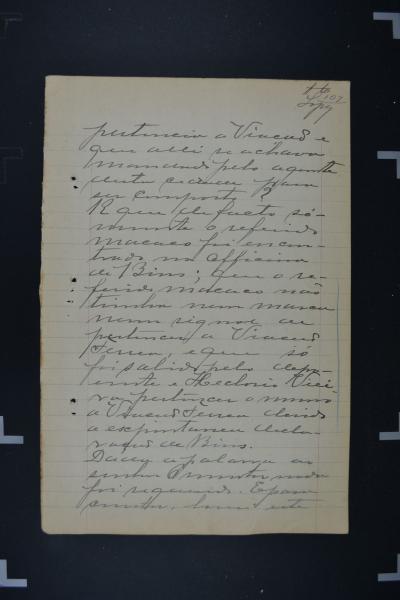 107
pertencia a Viação e
que alli se achava
mandado pelo agente
desta cidade para
ser composto?
R que de facto só-
mente o referido
macaco foi encon-
trado na officina
de Bins; que o re-
ferido macaco não
tinha nem marca
nem signal de
pertencer a Viação
Ferrea e que só
foi sabido pelo depo-
ente e Heitor Viei-
ra pertencer o mesmo
a Viação Ferrea devido
a espontanea decla-
ração de Bins.
Dada a palavra ao
senhor Promotor nada
foi requerido. E para
constar, lavrei este